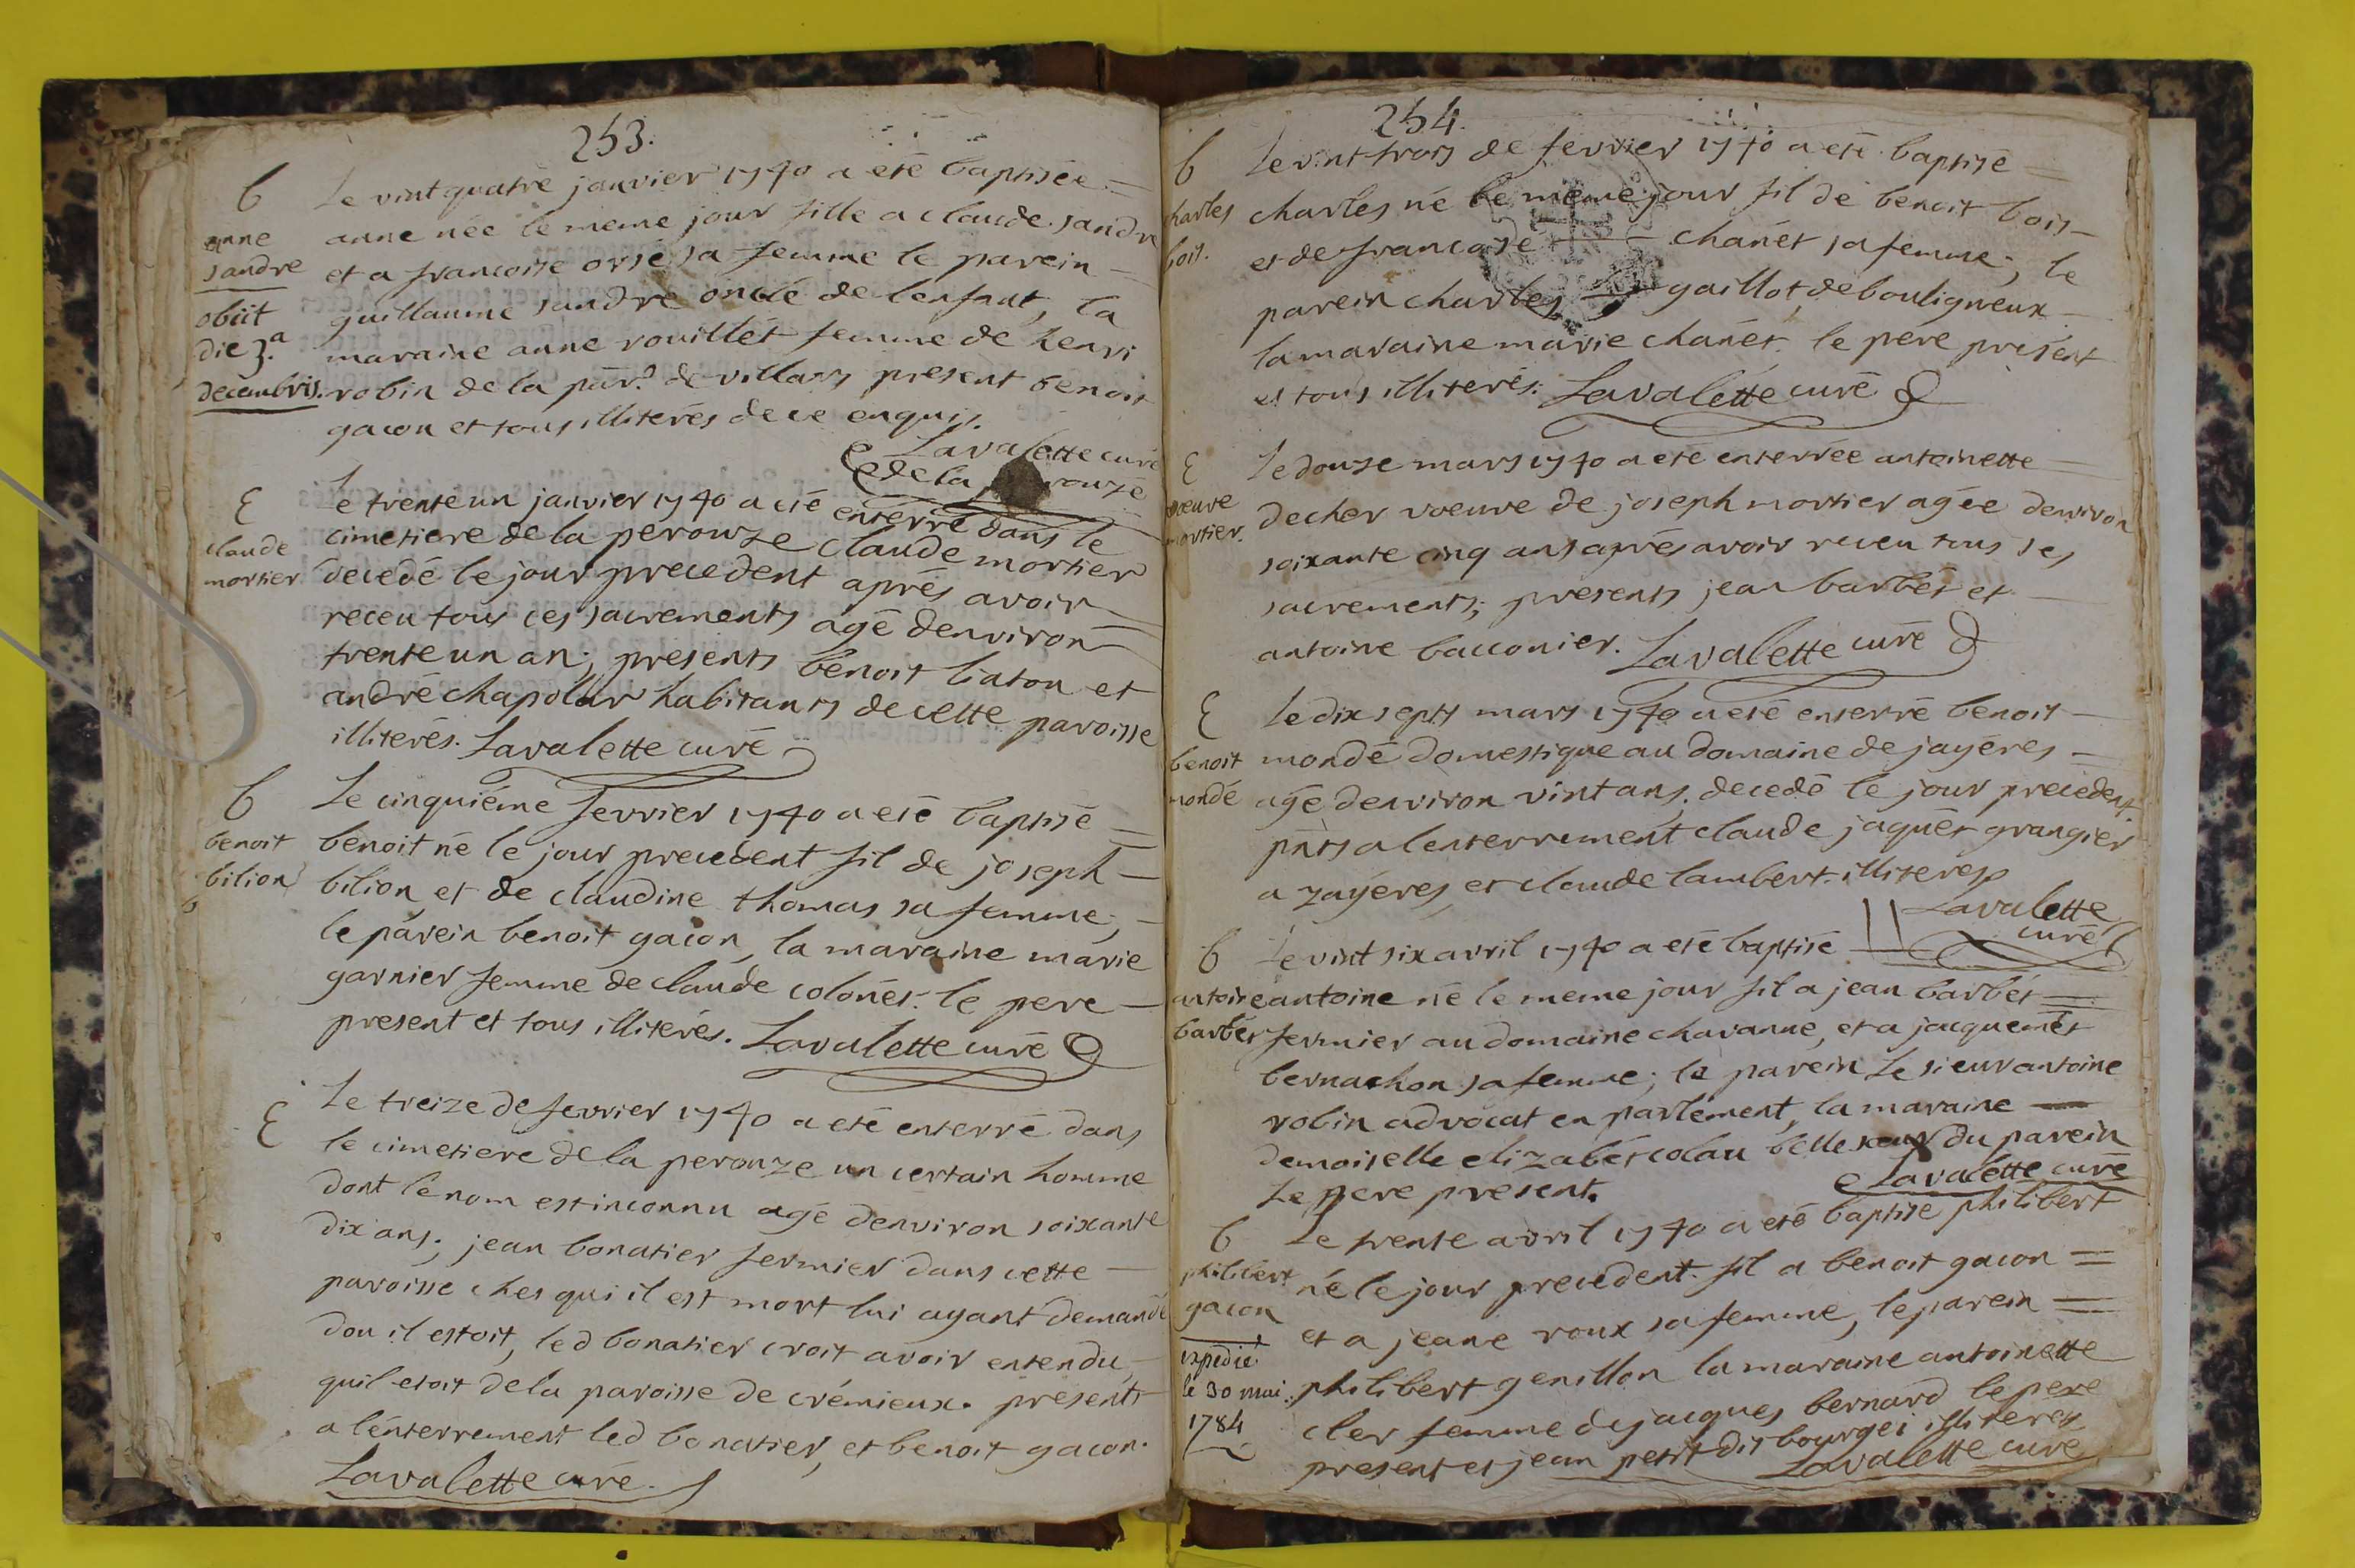 253.
b
anne
sandre
obiit
die 3.a
decembris.
Le vintquatre janvier 1740 a eté baptisée
anne née le meme jour fille a claude sandre
et a francoise orsé sa femme le parein
guillaume sandre oncle de lenfant, la
maraine anne rouillét femme de henri
robin de la par. de villars present benoit
gacon et tous illiterés de ce enquis.
Lavalette curé
de la perouze
E
claude
mortier
Le trente un janvier 1740 a eté enterré dans le
cimetiere de la perouze claude mortier
decedé le jour precedent aprés avoir
receu tous ces sacrements agé denviron
trente un an; presents benoit baton et
andré chapolar habitants de cette paroisse
illiterés. Lavalette curé
b
benoit
bilion
Le cinquiéme fevrier 1740 a eté baptisé
benoit né le jour precedent fil de joseph
bilion et de claudine thomas sa femme,
le parein benoit gacon, la maraine marie
garnier femme de claude colonét. le pere
present et tous illiterés. Lavalette curé
E
Le treize de fevrier 1740 a eté enterré dans
le cimetiere de la perouze un certain homme
dont le nom est inconnu agé denviron soixante
dix ans; jean bonatier fermier dans cette
paroisse ches qui il est mort lui ayant demandé
dou il estoit, led bonatier croit avoir entendu
quil etoit de la paroisse de crémieux. presents
a lenterrement led bonatier, et benoit gacon.
Lavalette curé.
254.
b
charles
bois.
Le vint trois de fevrier 1740 a eté baptisé
charles né le meme jour fil de benoit bois
et de francoise chanét sa femme; le
parein charles gaillot de bouligneux
la maraine marie chanét. le pere present
et tous illiterés. Lavalette curé
E
voeuve
mortier.
Le douze mars 1740 a eté enterrée antoinette
decher voeuve de joseph mortier agée denviron
soixante cinq ans aprés avoir receu tous ses
sacrements; presents jean barbét et
antoine bacconier. Lavalette curé
E
benoit
mondé
Le dix septs mars 1740 a eté enterré benoit
mondé domestique au domaine de jayéres
agé denviron vint ans, decedé le jour precedent
pnts a lenterrement claude jaquét grangier
a zayeres, et claude lambert. illiterés
Lavalette
curé
b
antoine
barbét
Le vint six avril 1740 a eté baptisé
antoine né le meme jour fil a jean barbét
fermier au domaine chavanne, et a jacquemét
bernachon sa femme; le parein Le sieur antoine
robin advocat en parlement, la maraine
demoiselle elizabét colau belle soeur du parein
Le pere present.
Lavalette curé
b
philibert
gacon
expedié
le 30 mai
1784
Le trente avril 1740 a eté baptisé philibert
né le jour precedent. fil a benoit gacon
et a jeane roux sa femme, le parein
philibert genillon la maraine antoinette
cler femme de jacques bernard le pere
present et jean petit dit bourgei illiterés
Lavalette curé